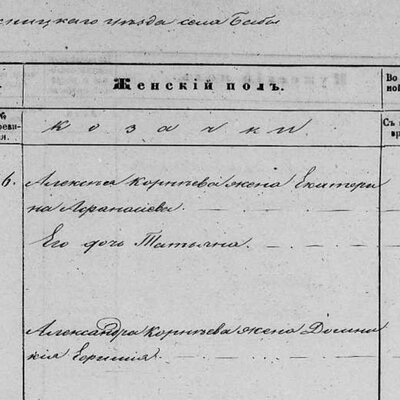 сницкаго уѣзда села Бабы
Женскій полъ.
Во
ной
№
реви-
ія.
козачки
Съ
вр
6.
Алексѣя Корнѣева жена Екатери
на Афанасіева.
Его дочь Татьяна.
Александра Корнѣева жена Домни
кія Ефимія.